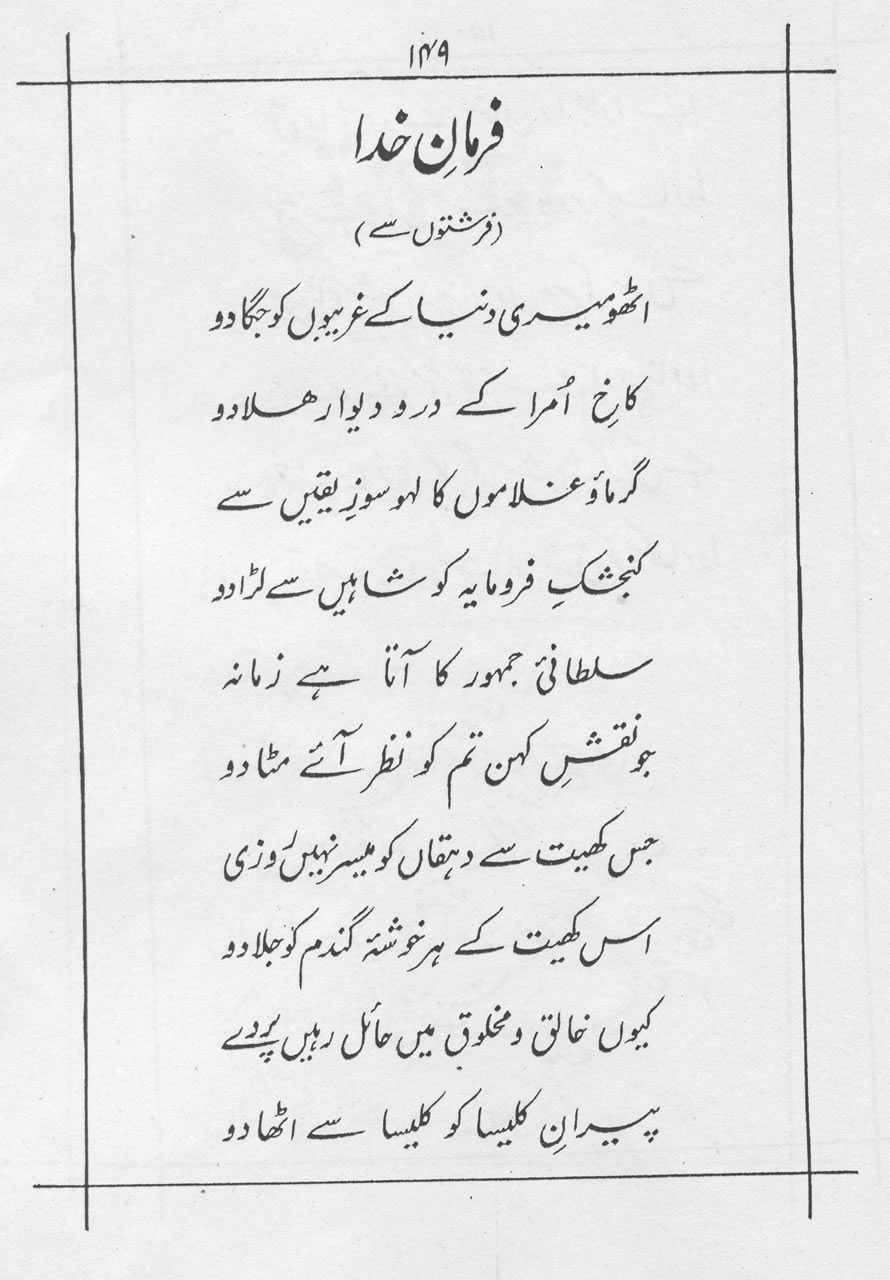 ۱۴۹
فرمانِ خدا
(فرشتوں سے)
اٹھو میری دنیا کے غریبوں کو جگا دو
کاخِ اُمرا کے در و دیوار ھلا دو
گرماؤ غلاموں کا لہو سوزِ یقیں سے
کنجشکِ فرومایہ کو شاہیں سے لڑا دو
سلطانیٔ جمہور کا آتا ہے زمانہ
جو نقشِ کہن تم کو نظر آئے مٹا دو
جس کھیت سے دہقاں کو میسر نہیں روزی
اس کھیت کے ہر خوشۂ گندم کو جلا دو
کیوں خالق و مخلوق میں حائل رہیں پردے
پیرانِ کلیسا کو کلیسا سے اٹھا دو